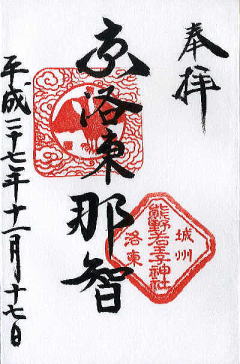 奉拝
京洛東那智
城州
熊野若王子神社
洛東
平成二十七年十一月十七日